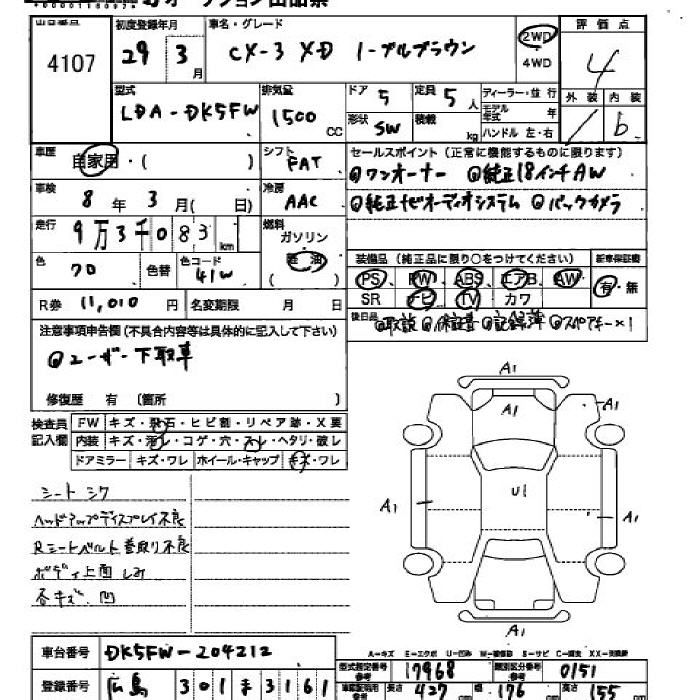 出品番号 初度登録年月 車名・グレード 2WD 評価点
4107 29年 3月 CX-3 XD 4WD 4
型式 排気量 ドア 定員 ディーラー・並行 外装 内装
LDA-DK5FW 1500 CC 5 5人 モデル年式 年 / b
形状 SW 積載 kg ハンドル 左・右
車歴 自家用・( ) シフト FAT セールスポイント(正常に機能するものに限ります)
車検 8年 3月( 日) 冷房 AAC ◎ワンオーナー ◎純正18インチAW
走行 9万3千083km 燃料 ◎純正ナビオーディオシステム ◎バックカメラ
ガソリン
色 色替 色コード 41W 軽油
( )
装備品(純正品に限り○をつけてください) 新車保証書
PS、PW、ABS、エアB、AW 有・無
SR ナビ TV カワ
R券 11,010円 名変期限 月 日
後日品 ◎取説 ◎保証書 ◎記録簿 ◎スペアキー×1
注意事項申告欄(不具合内容等は具体的に記入して下さい)
◎ユーザー下取車
修復歴 有 〔箇所 〕
検査員記入欄 FW キズ・飛石・ヒビ割・リペア跡・X要
内装 キズ・汚レ・コゲ・穴・スレ・ヘタリ・破レ
ドアミラー キズ・ワレ ホイール・キャップ キズ・ワレ
シートシワ
ヘッドアップディスプレイ不良
Rシートベルト巻取り不良
ボディ上面しみ
各キズ、凹
A1
A1
A1
U1
A1
A1
A1
A-キズ E-エクボ U-凹み W-補修跡 S-サビ C-腐食 XX-交換跡
車台番号 DK5FW-204212
型式指定番号 17968 類別区分番号 0151
登録番号 広島 301 ま 3161
長さ 427 cm 幅 176 cm 高さ 155 cm